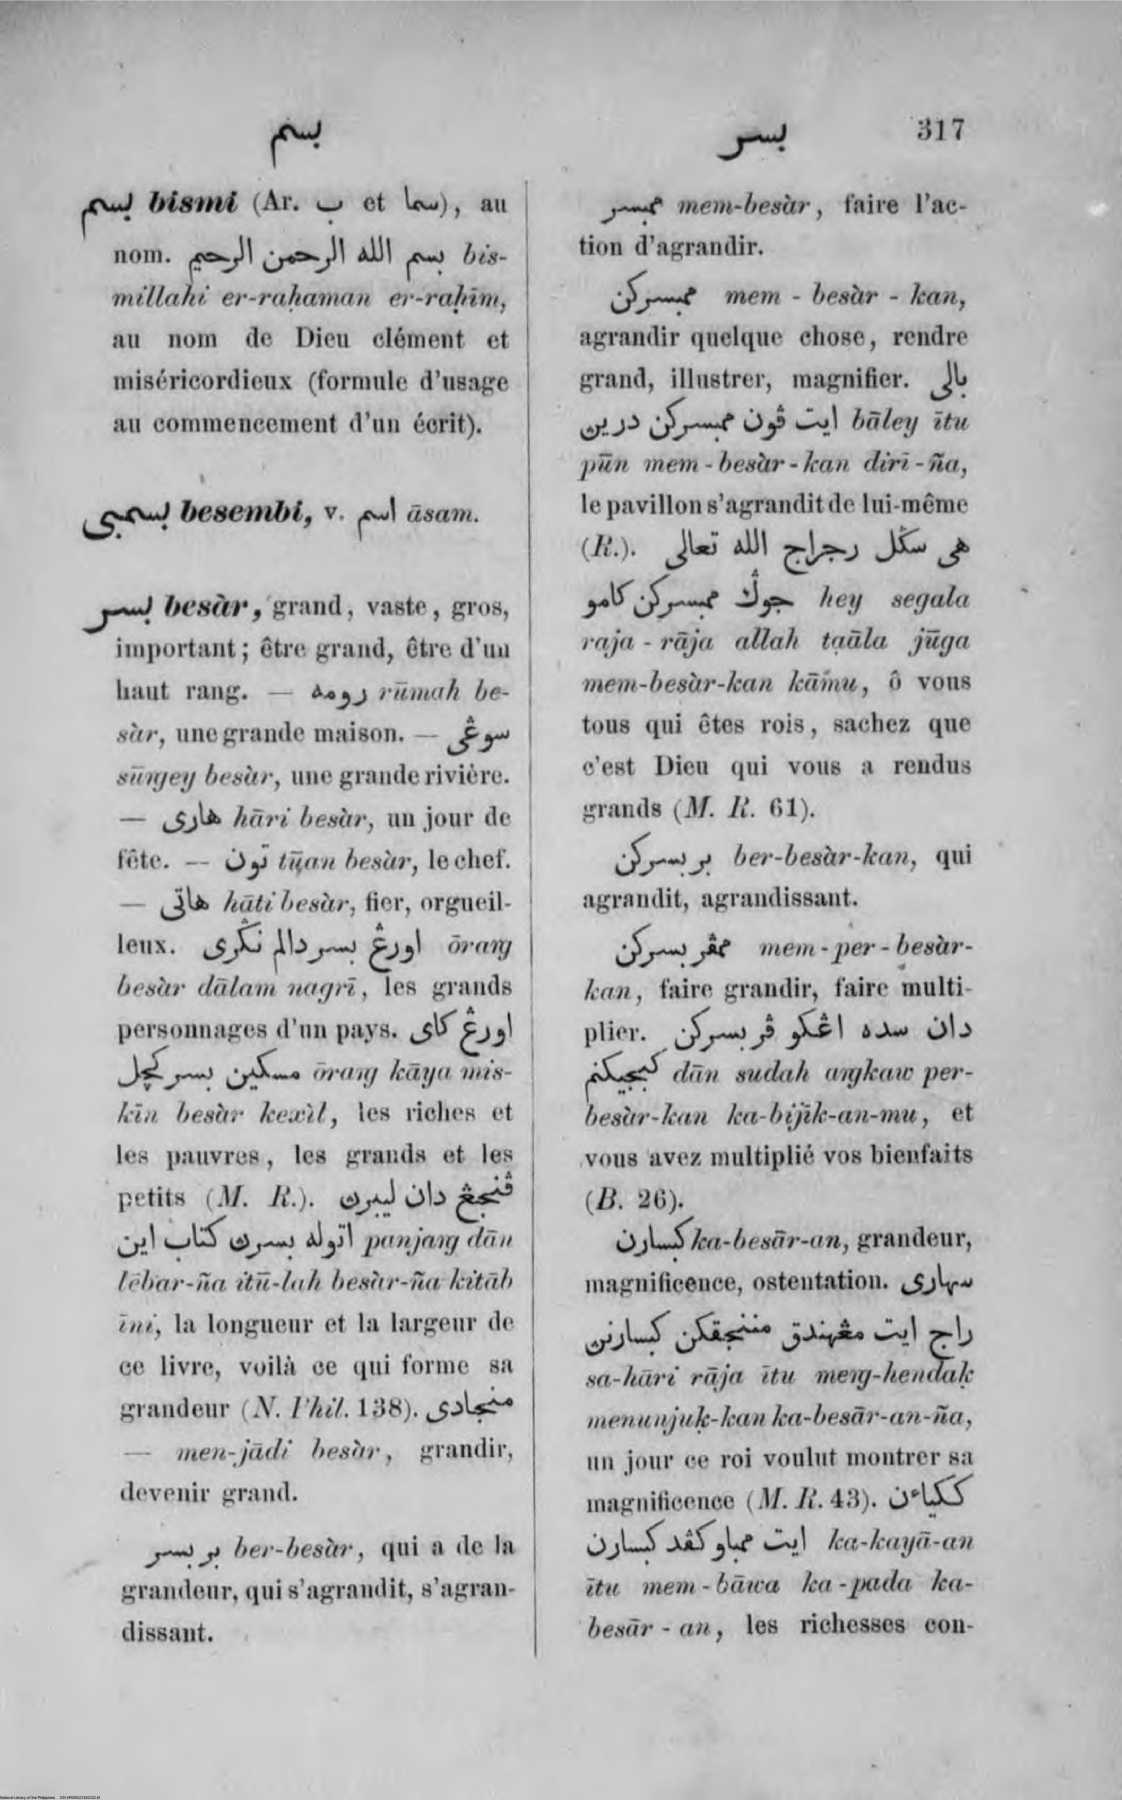 بسم
بسر
317
بسم bismi (Ar. ب et سما), au
nom. بسم الله الرحمن الرحيم bis-
millahi er-raḥaman er-raḥīm,
au nom de Dieu clément et
miséricordieux (formule d'usage
au commencement d'un écrit).
بسمبي besembi, v. اسم āsam.
بسر besàr, grand, vaste, gros,
important; être grand, être d'un
haut rang. — رومه rūmah be-
sàr, une grande maison. — سوڠى
sūngey besàr, une grande rivière.
— هارى hāri besàr, un jour de
fête. — تون tūan besàr, le chef.
— هاتى hāti besàr, fier, orgueil-
leux. اورڠ بسر دالم نگرى ōrang
besàr dālam nagrī, les grands
personnages d'un pays. اورڠ كاى
مسكين بسر كچل ōrang kāya mis-
kīn besàr kexìl, les riches et
les pauvres, les grands et les
petits (M. R.). ڤنجڠ دان ليبرڽ
اتوله بسرڽ كتاب اين panjang dān
lēbar-ña itū-lah besàr-ña kitāb
īni, la longueur et la largeur de
ce livre, voilà ce qui forme sa
grandeur (N. Phil. 138). منجادى
— men-jādi besàr, grandir,
devenir grand.
بر بسر ber-besàr, qui a de la
grandeur, qui s'agrandit, s'agran-
dissant.
ممبسر mem-besàr, faire l'ac-
tion d'agrandir.
ممبسركن mem-besàr-kan,
agrandir quelque chose, rendre
grand, illustrer, magnifier. بالى
ايت ڤون ممبسركن درين bāley ītu
pūn mem-besàr-kan diri-ña,
le pavillon s'agrandit de lui-même
(R.). هى سگل رجراج الله تعالى
جوݢ ممبسركن كامو hey segala
raja-rāja allah taāla jūga
mem-besàr-kan kāmu, ô vous
tous qui êtes rois, sachez que
c'est Dieu qui vous a rendus
grands (M. R. 61).
بر بسركن ber-besàr-kan, qui
agrandit, agrandissant.
ممڤر بسركن mem-per-besàr-
kan, faire grandir, faire multi-
plier. دان سده اڠكو ڤر بسركن
كبجيكنم dān sudah angkaw per-
besàr-kan ka-bijīk-an-mu, et
vous avez multiplié vos bienfaits
(B. 26).
كبسارن ka-besār-an, grandeur,
magnificence, ostentation. سهارى
راج ايت مڠهندق مننجقكن كبسارنڽ
sa-hāri rāja ītu meng-hendaḳ
menunjuḳ-kan ka-besār-an-ña,
un jour ce roi voulut montrer sa
magnificence (M. R. 43). ككياءن
ايت ممباو كڤد كبسارن ka-kayā-an
ītu mem-bāwa ka-pada ka-
besār-an, les richesses con-